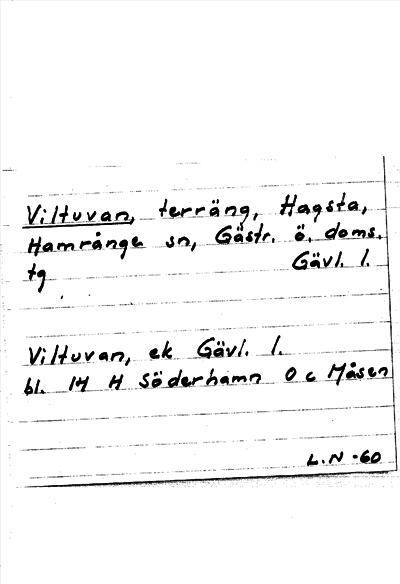 Viltuvan, terräng, Hagsta,
Hamrånge sn, Gästr. ö. doms.
tg Gävl. l.
Viltuvan, ek Gävl. l.
bl. 14 H Söderhamn 0 c Måsen
L.N -60